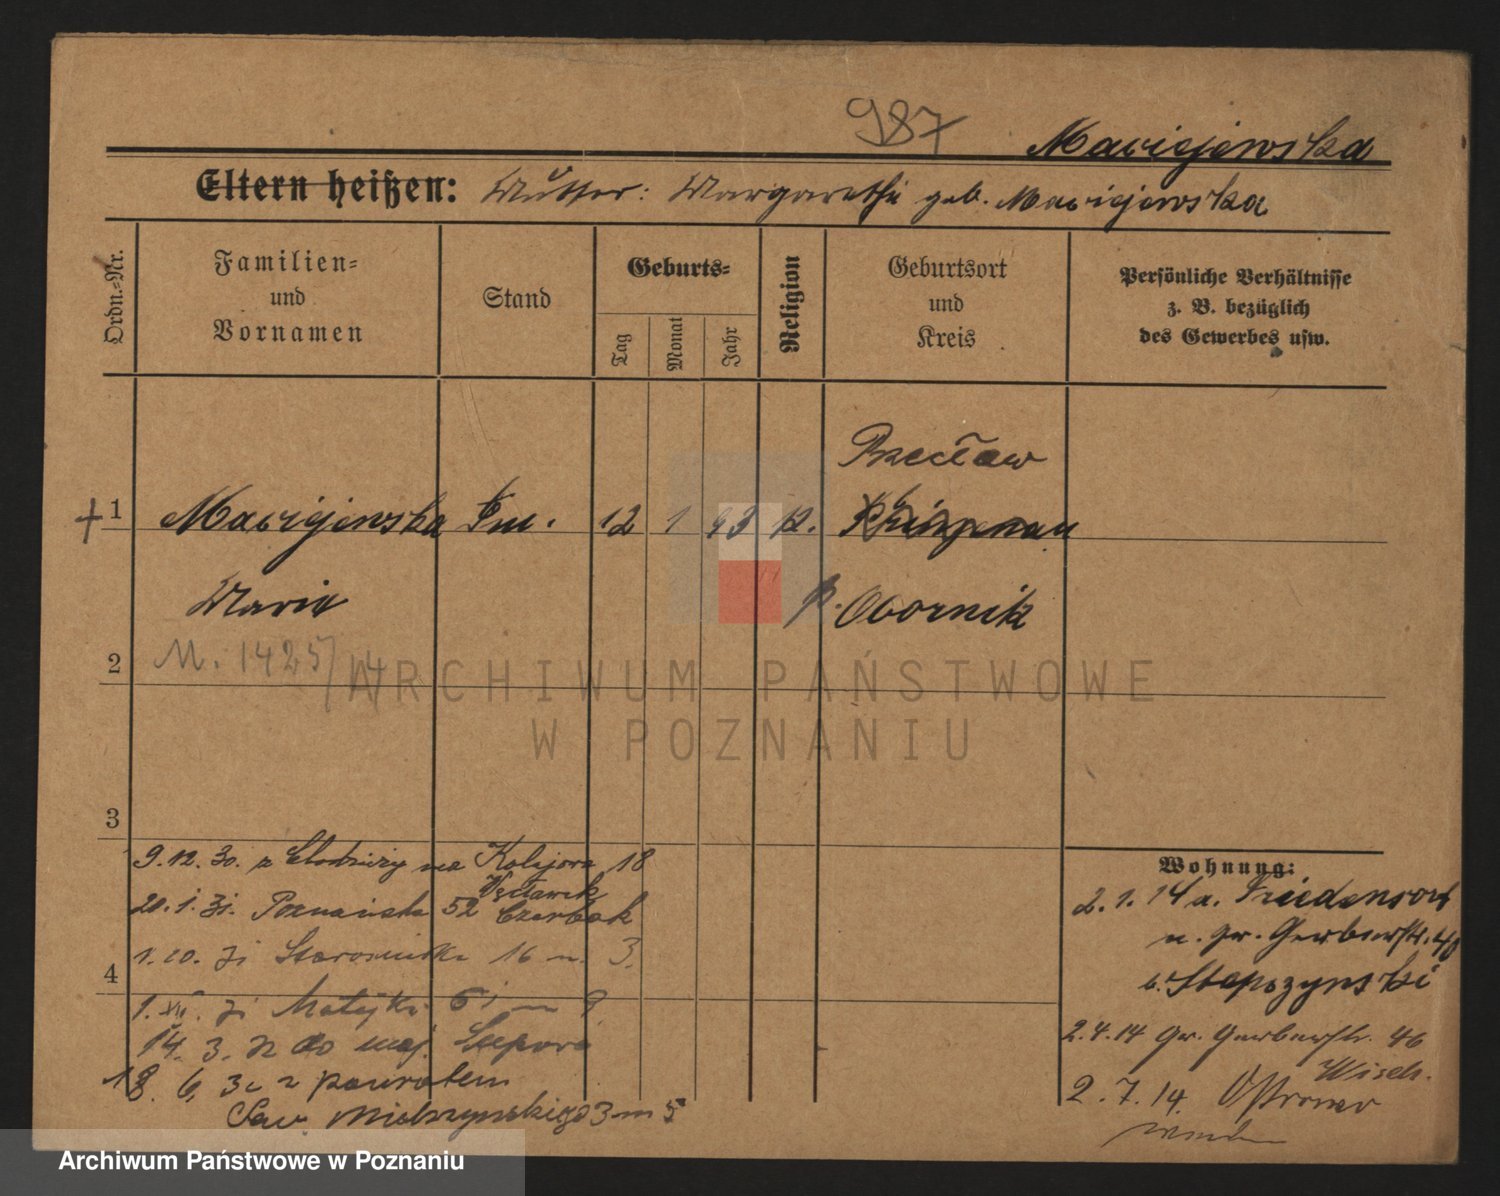 987
Maciejewska
Eltern heißen: Mutter: Margarethe geb. Maciejewska
Ordn.-Nr.
Familien-
und
Vornamen
Stand
Geburts-
Tag
Monat
Jahr
Religion
Geburtsort
und
Kreis
Persönliche Verhältnisse
z. B. bezüglich
des Gewerbes usw.
Przecław
+ 1 Maciejewska 12 1 93 k.
Maria
Obornik
M. 1425/14
2
3
4
9.12.30. z na 18
20.1.31. Poznańska 52
1.10. 31 16 m. 3.
1. XII. 31 Matejki 51 m 9
14. 3. 32 do maj.
18. 6. 32 z powrotem
Sew. Mielżyńskiego 3 m 5
Wohnung:
2.1.14 a. Friedensort
n. gr. Gerberstr. 40
b. Stepczynski
2.4.14 gr. Gerberstr. 46
2.7.14.
ARCHIWUM PAŃSTWOWE
W POZNANIU
Archiwum Państwowe w Poznaniu